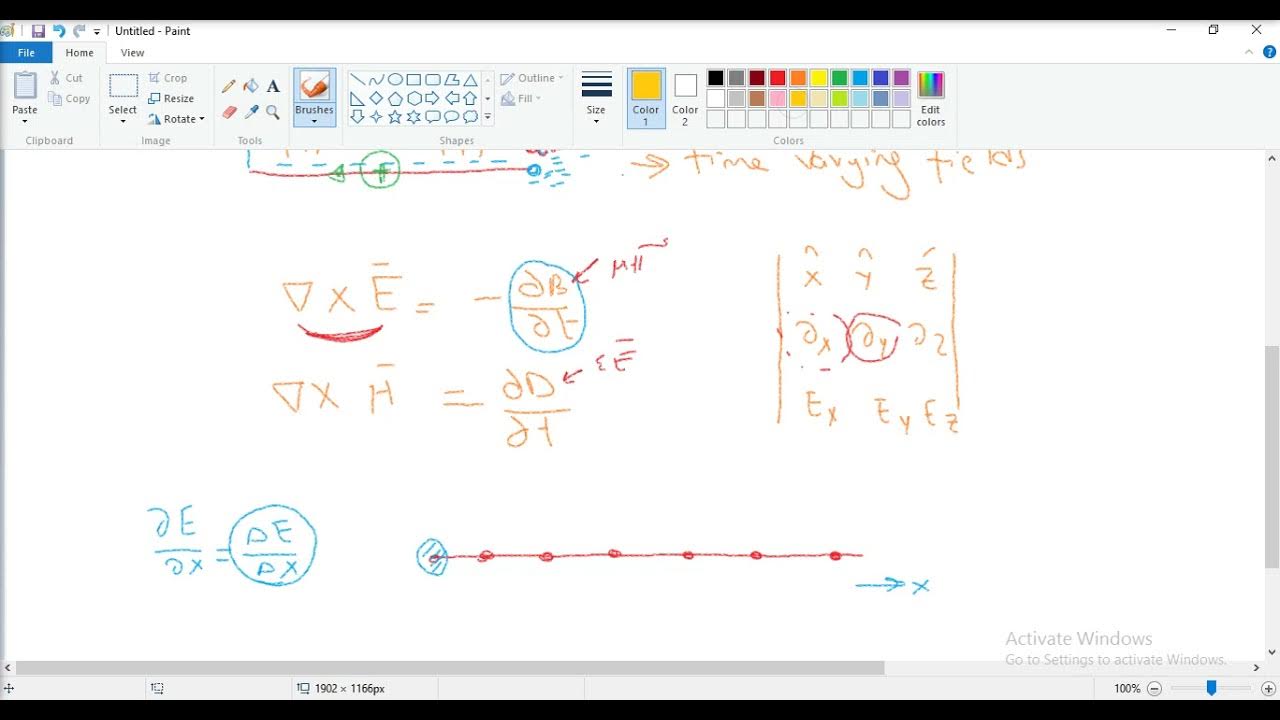 Untitled - Paint
File Home View
Paste
Cut
Copy
Clipboard
Select
Crop
Resize
Rotate
Image
A
Tools
Brushes
Shapes
Outline
Fill
Size
Color 1
Color 2
Edit colors
Colors
+
→ time varying fields
∇ X Ē = - ∂B/∂t ← μH
∇ X H̄ = ∂D/∂t ← εĒ
x̂ ŷ ẑ
∂x ∂y ∂z
Ex Ey Ez
∂E/∂x = ΔE/ΔX
→ x
Activate Windows
Go to Settings to activate Windows.
1902 × 1166px
100%